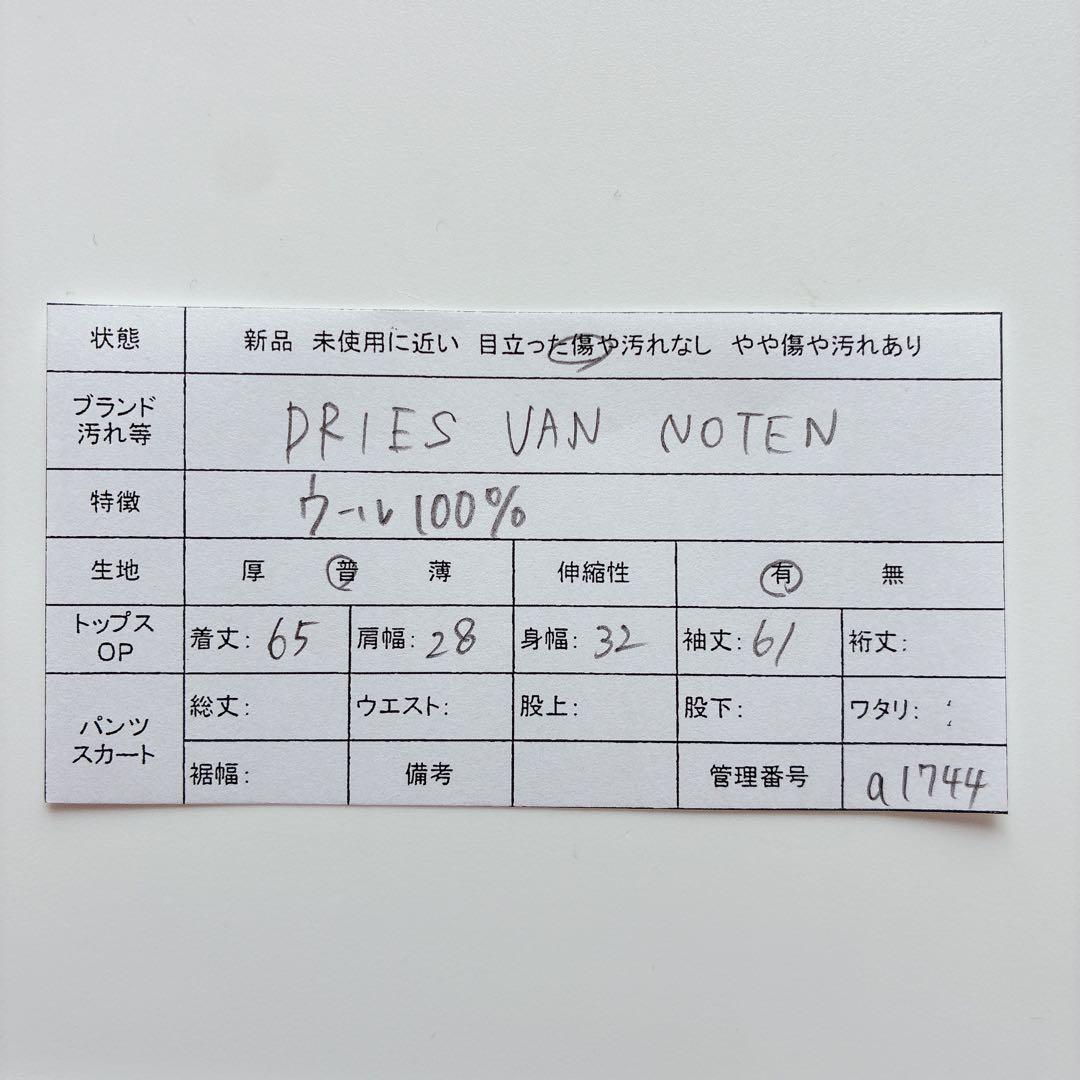 状態 新品 未使用に近い 目立った傷や汚れなし やや傷や汚れあり
ブランド
汚れ等 DRIES VAN NOTEN
特徴 ウール100%
生地 厚 普 薄 伸縮性 有 無
トップス
OP 着丈: 65 肩幅: 28 身幅: 32 袖丈: 61 裄丈:
パンツ
スカート 総丈: ウエスト: 股上: 股下: ワタリ:
裾幅: 備考 管理番号 a1744